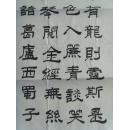 有龍則靈斯是
色入簾青談笑
琴閱金經無絲
諸葛廬西蜀子